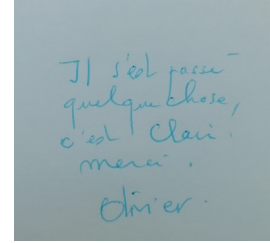 Il s'est passé
quelque chose,
c'est clair.
merci.
Olivier.